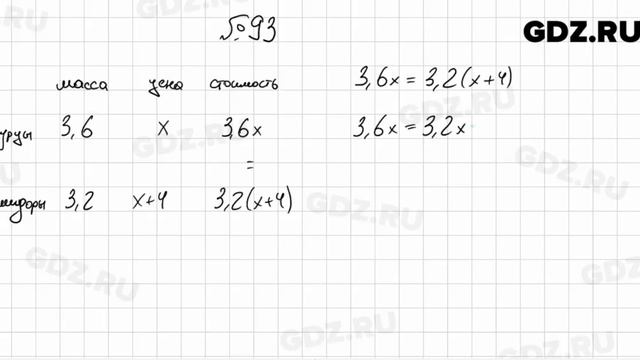 №93
GDZ.RU
масса цена стоимость
урцы 3,6 x 3,6x
=
мидоры 3,2 x+4 3,2(x+4)
3,6x = 3,2(x+4)
3,6x = 3,2x
GDZ.RU
GDZ.RU
GDZ.RU
GDZ.RU
GDZ.RU
GDZ.RU
GDZ.RU